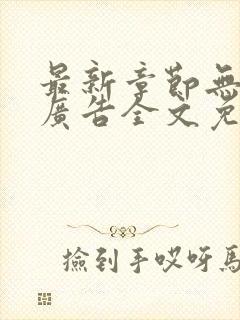 最新章節無
廣告全文免
撿到手哎呀馬